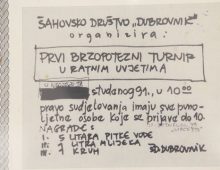 ŠAHOVSKO DRUŠTVO "DUBROVNIK"
organizira:
PRVI BRZOPOTEZNI TURNIR
U RATNIM UVJETIMA
studenog 91., u 10,00
pravo sudjelovanja imaju sve puno-
ljetne osobe koje se prijave do 10.
NAGRADE:
I. 5 LITARA PITKE VODE
II. 1 LITRA MLIJEKA
III. 1 KRUH
ŠD DUBROVNIK